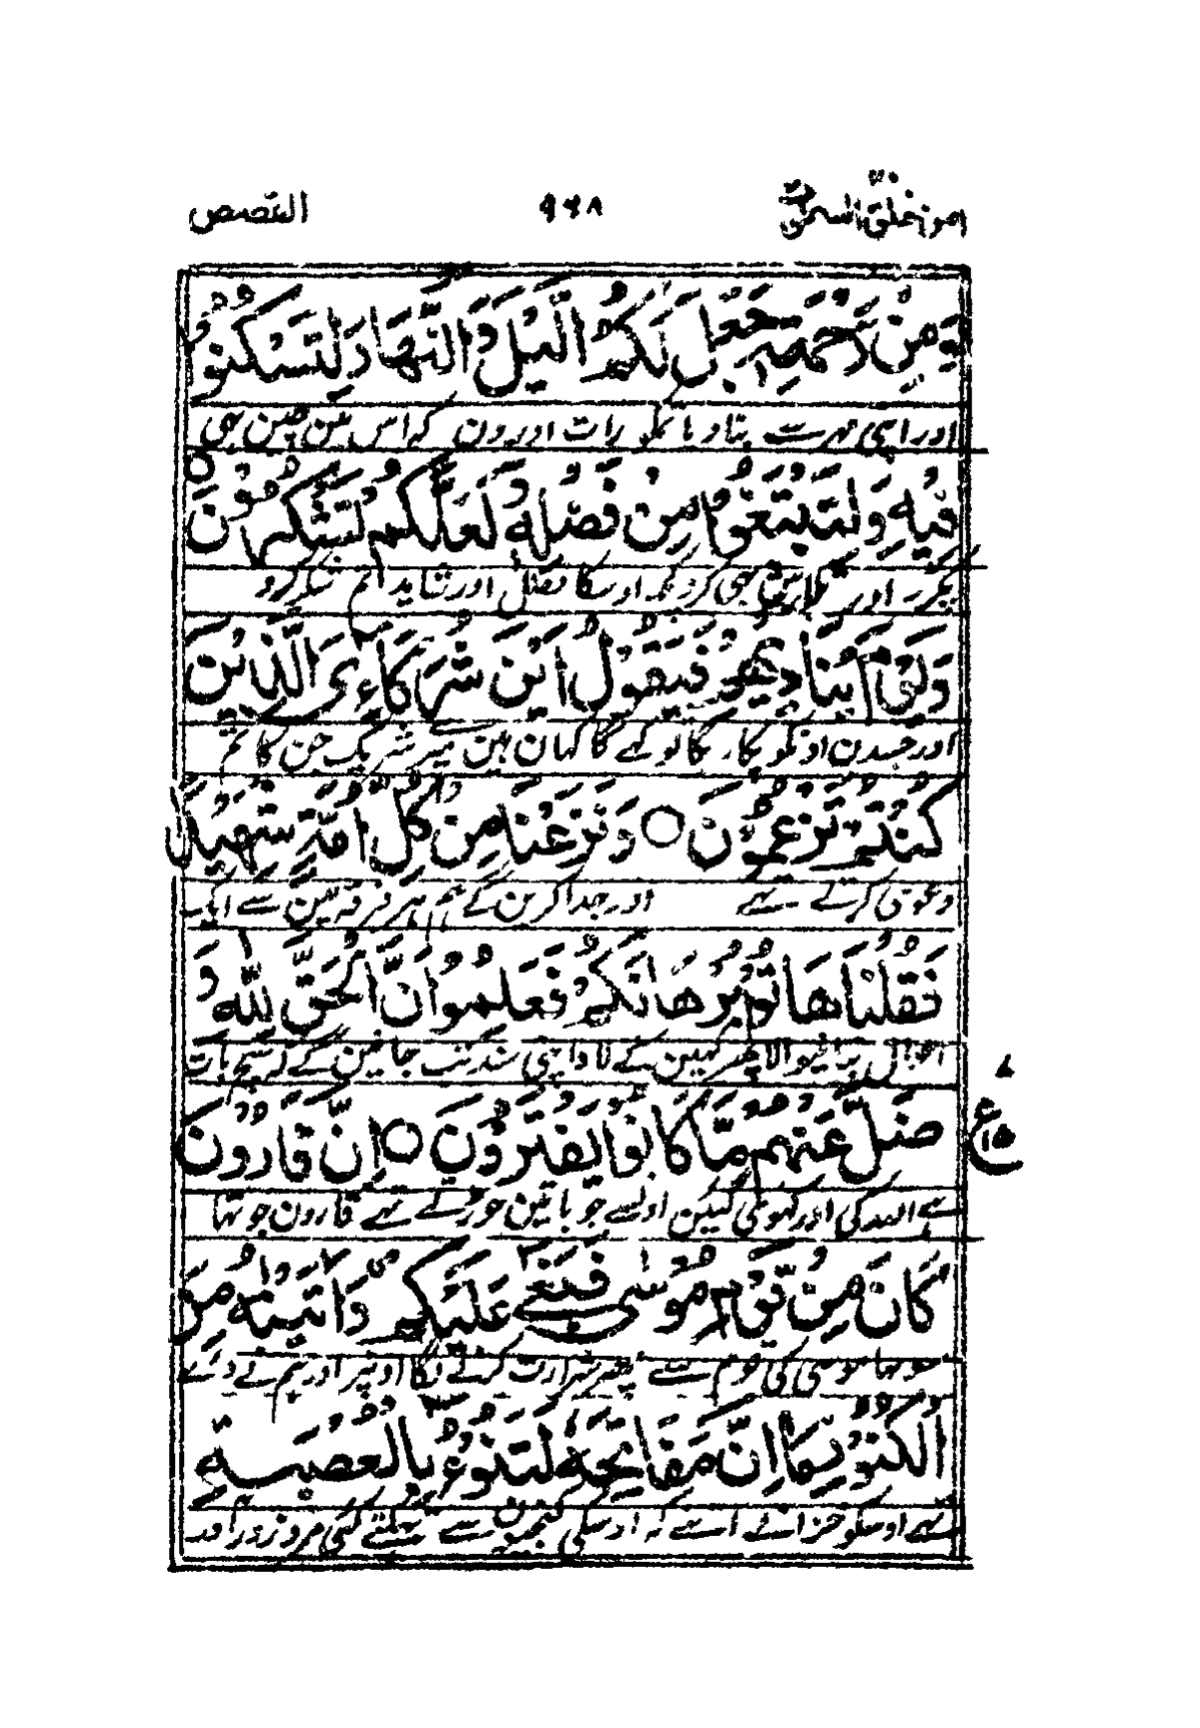 امن خلق السموٰت ٩٦٨ القصص
وَمِنْ رَّحْمَتِهٖ جَعَلَ لَكُمُ الَّيْلَ وَالنَّهَارَ لِتَسْكُنُوْا
اور اپنی مہر سے بنا دیا تمکو رات اور دن کہ اس مین چین بھی
فِيْهِ وَلِتَبْتَغُوْا مِنْ فَضْلِهٖ وَلَعَلَّكُمْ تَشْكُرُوْنَ
پکڑو اور تلاش بھی کرو کچھ اوسکا فضل اور شاید تم شکر کرو
وَيَوْمَ يُنَادِيْهِمْ فَيَقُوْلُ اَيْنَ شُرَكَاءِيَ الَّذِيْنَ
اور جسدن اونکو پکاریگا تو کہے گا کہان ہین میرے شریک جن کا تم
كُنْتُمْ تَزْعُمُوْنَ ○ وَنَزَعْنَا مِنْ كُلِّ اُمَّةٍ شَهِيْدًا
دعوی کرتے تھے اور جدا کرین گے ہم ہر فرقہ مین سے ایک
فَقُلْنَا هَاتُوْا بُرْهَانَكُمْ فَعَلِمُوْا اَنَّ الْحَقَّ لِلّٰهِ وَ
احوال بتانیوالا پھر کہین گے لاؤ اپنی سند تب جانین گے کہ سچ بات
ضَلَّ عَنْهُمْ مَّا كَانُوْا يَفْتَرُوْنَ ○ اِنَّ قَارُوْنَ
ہے اللہ کی اور کھوئی گئین اونسے جو باتین جوڑتے تھے قارون جو تھا
ع
كَانَ مِنْ قَوْمِ مُوْسٰى فَبَغٰى عَلَيْهِمْ وَاٰتَيْنٰهُ مِنَ
سو تھا موسی کی قوم سے پھر شرارت کرنے لگا اونپر اور ہم نے دئے
الْكُنُوْزِ مَا اِنَّ مَفَاتِحَهٗ لَتَنُوْءُ بِالْعُصْبَةِ
تھے اوسکو خزانے اتنے کہ اوسکی کنجیون سے تھکتے کئی مرد زورآور